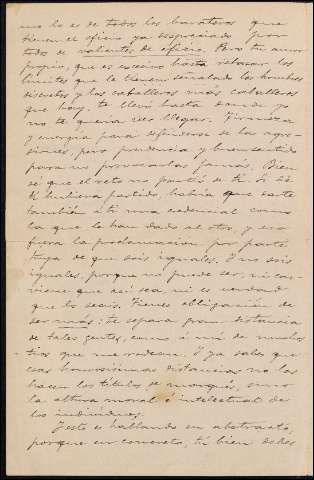 uno lo es de todos los barateros que
tienen el oficio ya desgraciado por
todo de valientes de oficio. Pero tu amor
propio, que es excesivo hasta rebasar los
límites que le tienen señalado los hombres
discretos y los caballeros más caballeros
que hoy, te llevó hasta donde yo
no te quería ver llegar. Firmeza
y energía para defenderse de las agre-
siones, pero prudencia y buen sentido
para no provocarlas jamás. Bien
sé que el reto no partió de ti. Si de
ti hubiera partido, habría que darte
también á ti una
la que le han dado al otro, y eso
fuera la proclamación por parte
tuya de que sois iguales. Y no sois
iguales, porque no puede ser, ni con-
viene que así sea, ni es verdad
que lo seais. Tienes obligación de
ser más: te separa gran distancia
de tales gentes, como á mí de muchos
tíos que me rodean. Y ya sabes que
esas honrosísimas distancias no las
hacen los títulos de marqués, sino
la altura moral é intelectual de
los individuos.
Y esto es hablando en abstracto,
porque en concreto, tú bien debes